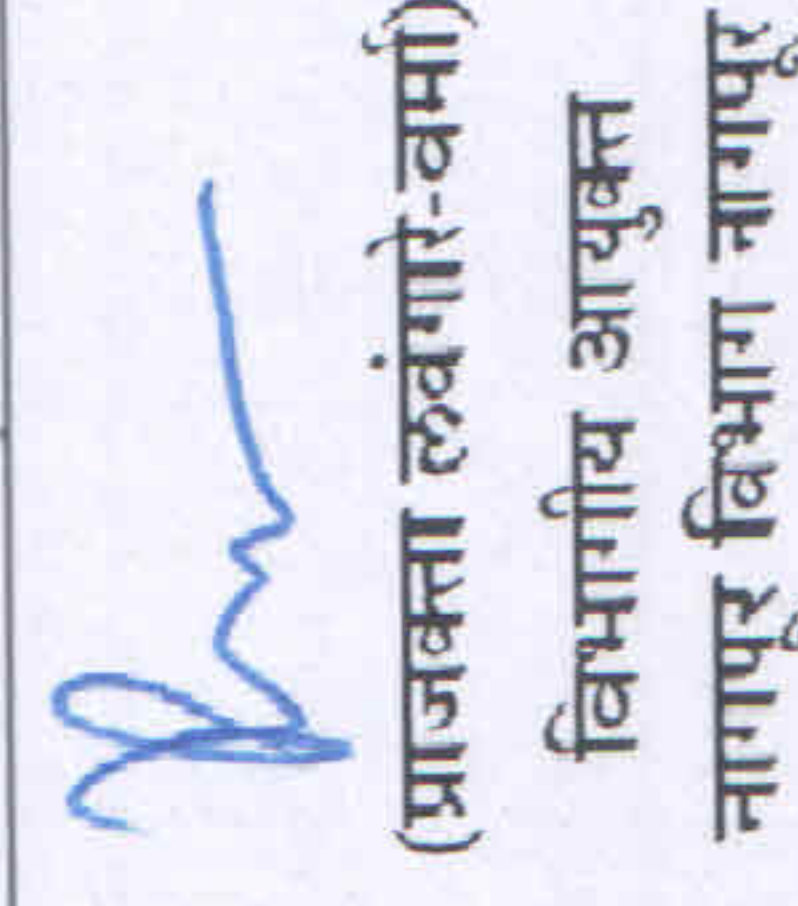 (प्राजक्ता लवंगारे-वर्मा)
विभागीय आयुक्त
नागपूर विभाग नागपूर